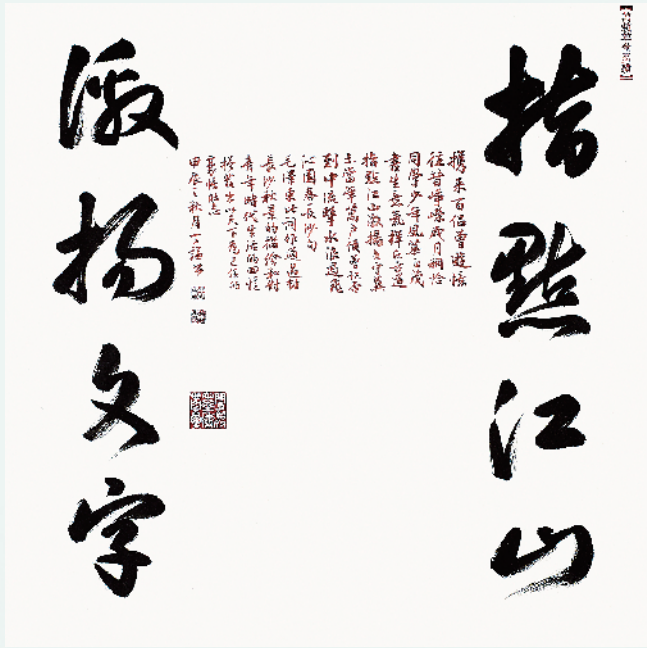 指點江山
攜來百侶曾遊憶
往昔崢嶸歲月稠恰
同學少年風華正茂
書生意氣揮斥方遒
指點江山激揚文字糞
土當年萬戶侯曾記否
到中流擊水浪遏飛
沁園春長沙句
毛澤東此詞作通過對
長沙秋景的描繪和對
青年時代生活的回憶
抒發出以天下為己任的
豪情壯志
甲辰之秋月
激揚文字